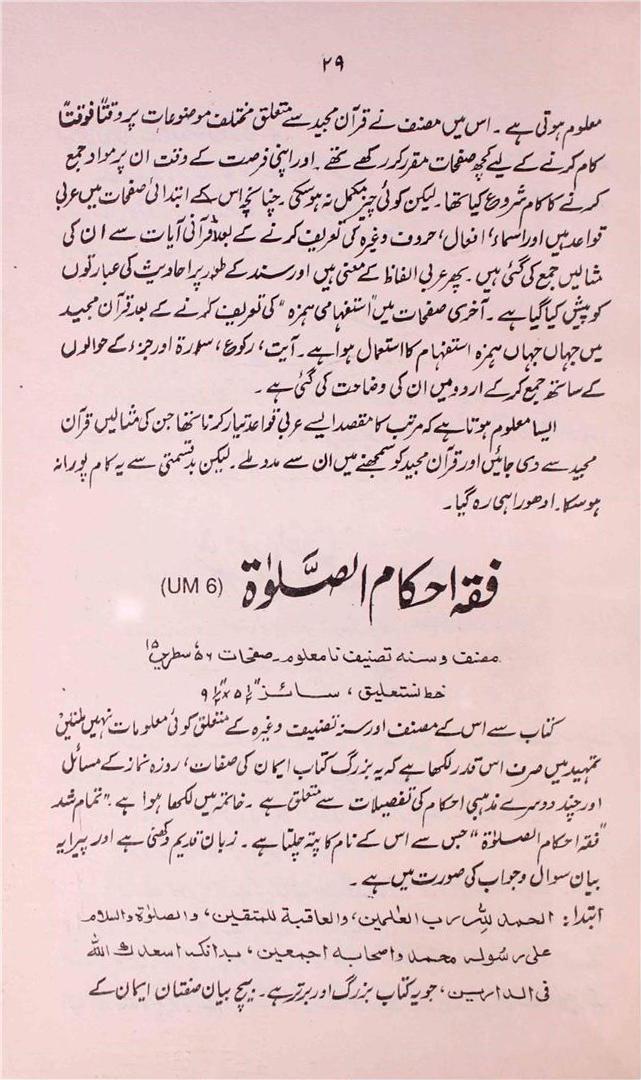 ۲۹
معلوم ہوتی ہے ۔ اس میں مصنف نے قرآن مجید سے متعلق مختلف موضوعات پر وقتاً فوقتاً
کام کرنے کے لیے کچھ صفحات مقرر کر رکھے تھے ۔ اور اپنی فرصت کے وقت ان پر مواد جمع
کرنے کا کام شروع کیا تھا ۔ لیکن کوئی چیز مکمل نہ ہو سکی ۔ چنانچہ اس کے ابتدائی صفحات میں عربی
قواعد ہیں اور اسماء، افعال، حروف وغیرہ کی تعریف کرنے کے بعد قرآنی آیات سے ان کی
مثالیں جمع کی گئی ہیں ۔ پھر عربی الفاظ کے معنی ہیں اور سند کے طور پر احادیث کی عبارتوں
کو پیش کیا گیا ہے ۔ آخری صفحات میں "استفہامی ہمزہ" کی تعریف کرنے کے بعد قرآن مجید
میں جہاں جہاں ہمزہ استفہام کا استعمال ہوا ہے ۔ آیت، رکوع، سورۃ اور جزء کے حوالوں
کے ساتھ جمع کر کے اردو میں ان کی وضاحت کی گئی ہے ۔
ایسا معلوم ہوتا ہے کہ مرتب کا مقصد ایسے عربی قواعد تیار کرنا تھا جن کی مثالیں قرآن
مجید سے دی جائیں اور قرآن مجید کو سمجھنے میں ان سے مدد ملے ۔ لیکن بدقسمتی سے یہ کام پورا نہ
ہو سکا ۔ ادھورا ہی رہ گیا ۔
فقہ احکام الصَّلوٰۃ (UM 6)
مصنف و سنہ تصنیف نامعلوم ۔ صفحات ۵۶ سطریں ۱۵
خط نستعلیق، سائز ۹½" x ۵½"
کتاب سے اس کے مصنف اور سنہ تصنیف وغیرہ کے متعلق کوئی معلومات نہیں ملتیں
تمہید میں صرف اس قدر لکھا ہے کہ یہ بزرگ کتاب ایمان کی صفات، روزہ نماز کے مسائل
اور چند دوسرے مذہبی احکام کی تفصیلات سے متعلق ہے ۔ خاتمہ میں لکھا ہوا ہے ۔ "تمام شد
"فقہ احکام الصلوٰۃ" جس سے اس کے نام کا پتہ چلتا ہے ۔ زبان قدیم دکھنی ہے اور پیرایہ
بیان سوال و جواب کی صورت میں ہے ۔
ابتدا: الحمد للہ رب العلمین، والعاقبۃ للمتقین، والصلوٰۃ والسلام
علی رسولہ محمد واصحابہ اجمعین، بدانکہ اسعدک اللہ
فی الدارین، جو یہ کتاب بزرگ اور برتر ہے ۔ بیچ بیان صفتان ایمان کے